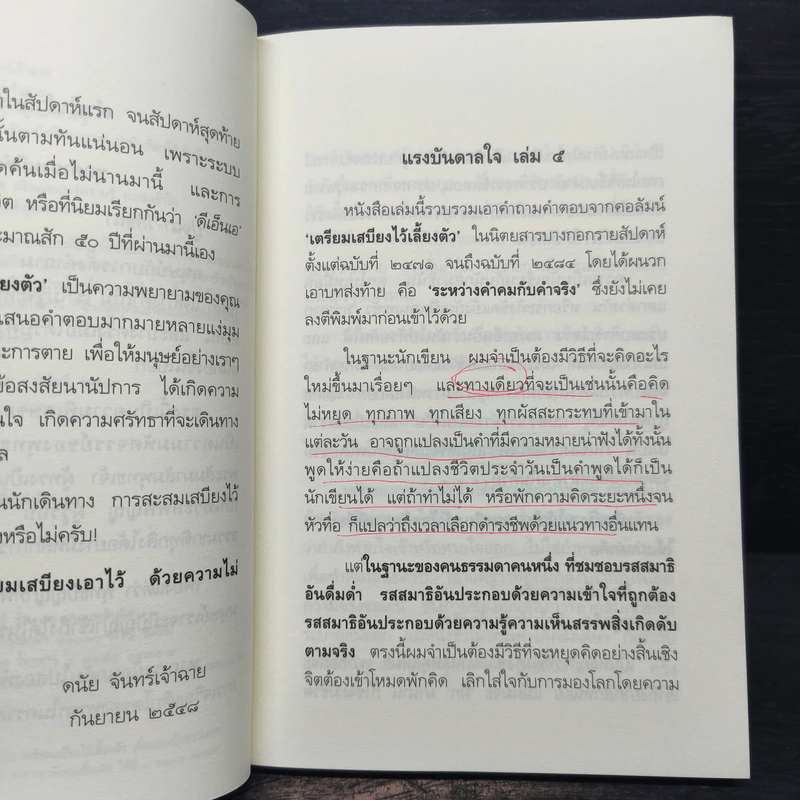 ในสัปดาห์แรก จนสัปดาห์สุดท้าย
นั้นตามทันแน่นอน เพราะระบบ
ค้นเมื่อไม่นานมานี้ และการ
หรือที่นิยมเรียกกันว่า ‘ดีเอ็นเอ’
ะมาณสัก ๕๐ ปีที่ผ่านมานี้เอง
ยงตัว’ เป็นความพยายามของคุณ
เสนอคำตอบมากมายหลายแง่มุม
ะการตาย เพื่อให้มนุษย์อย่างเราๆ
ข้อสงสัยนานัปการ ได้เกิดความ
นใจ เกิดความศรัทธาที่จะเดินทาง
ล
นนักเดินทาง การสะสมเสบียงไว้
งหรือไม่ครับ!
ยมเสบียงเอาไว้ ด้วยความไม่
ดนัย จันทร์เจ้าฉาย
กันยายน ๒๕๔๘
แรงบันดาลใจ เล่ม ๕
หนังสือเล่มนี้รวบรวมเอาคำถามคำตอบจากคอลัมน์
‘เตรียมเสบียงไว้เลี้ยงตัว’ ในนิตยสารบางกอกรายสัปดาห์
ตั้งแต่ฉบับที่ ๒๔๗๑ จนถึงฉบับที่ ๒๔๘๔ โดยได้ผนวก
เอาบทส่งท้าย คือ ‘ระหว่างคำคมกับคำจริง’ ซึ่งยังไม่เคย
ลงตีพิมพ์มาก่อนเข้าไว้ด้วย
ในฐานะนักเขียน ผมจำเป็นต้องมีวิธีที่จะคิดอะไร
ใหม่ขึ้นมาเรื่อยๆ และทางเดียวที่จะเป็นเช่นนั้นคือคิด
ไม่หยุด ทุกภาพ ทุกเสียง ทุกผัสสะกระทบที่เข้ามาใน
แต่ละวัน อาจถูกแปลงเป็นคำที่มีความหมายน่าฟังได้ทั้งนั้น
พูดให้ง่ายคือถ้าแปลงชีวิตประจำวันเป็นคำพูดได้ก็เป็น
นักเขียนได้ แต่ถ้าทำไม่ได้ หรือพักความคิดระยะหนึ่งจน
หัวทื่อ ก็แปลว่าถึงเวลาเลือกดำรงชีพด้วยแนวทางอื่นแทน
แต่ในฐานะของคนธรรมดาคนหนึ่ง ที่ชมชอบรสสมาธิ
อันดื่มด่ำ รสสมาธิอันประกอบด้วยความเข้าใจที่ถูกต้อง
รสสมาธิอันประกอบด้วยความรู้ความเห็นสรรพสิ่งเกิดดับ
ตามจริง ตรงนี้ผมจำเป็นต้องมีวิธีที่จะหยุดคิดอย่างสิ้นเชิง
จิตต้องเข้าโหมดพักคิด เลิกใส่ใจกับการมองโลกโดยความ